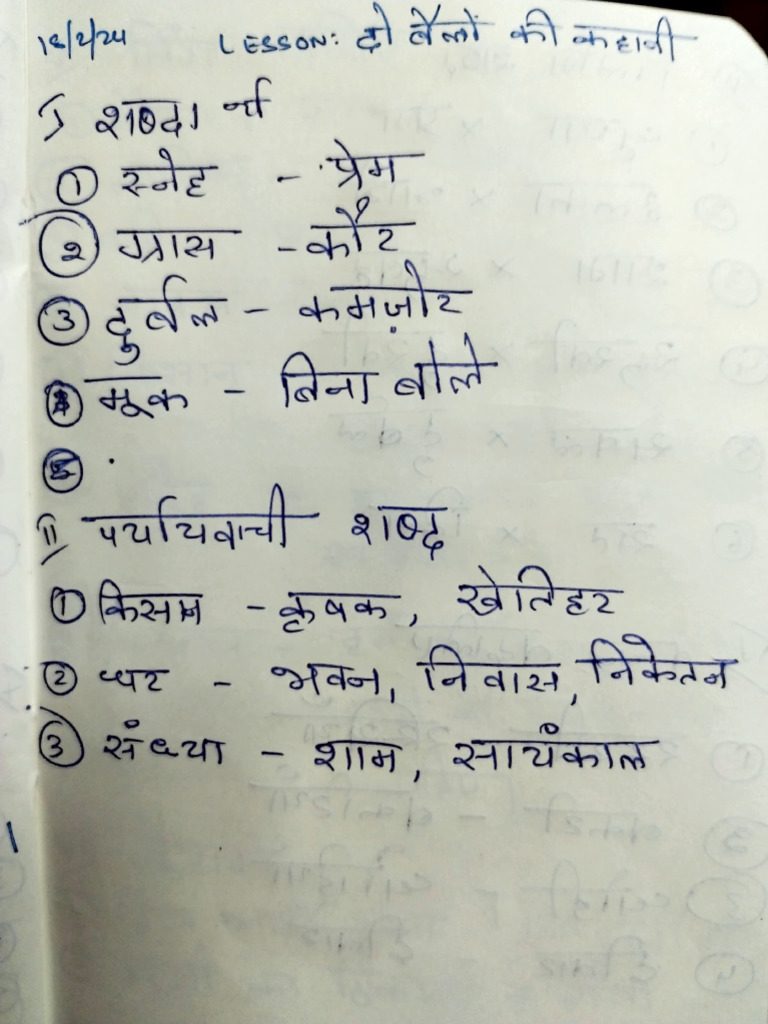 18/2/24 LESSON: दो बैलों की कहानी
I शब्दार्थ
① स्नेह - प्रेम
② ग्रास - कौर
③ दुर्बल - कमज़ोर
④ मूक - बिना बोले
⑤ .
II पर्यायवाची शब्द
① किसान - कृषक, खेतिहर
② घर - भवन, निवास, निकेतन
③ संध्या - शाम, सायंकाल